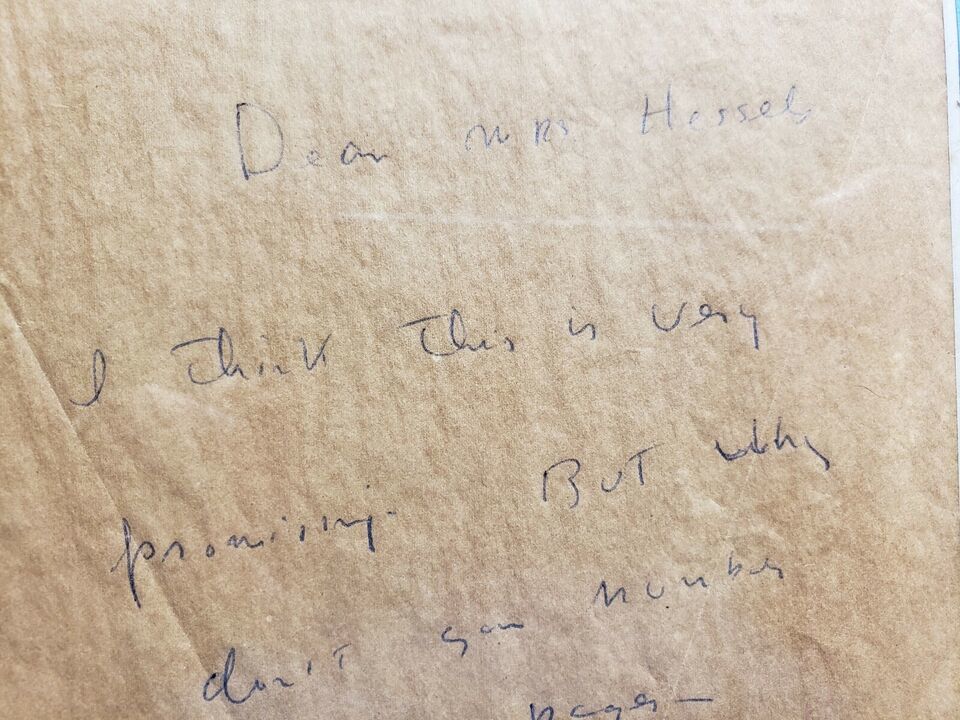 Dear Mrs. Hessel
I think this is very
promising. But why
don't you number
pages—